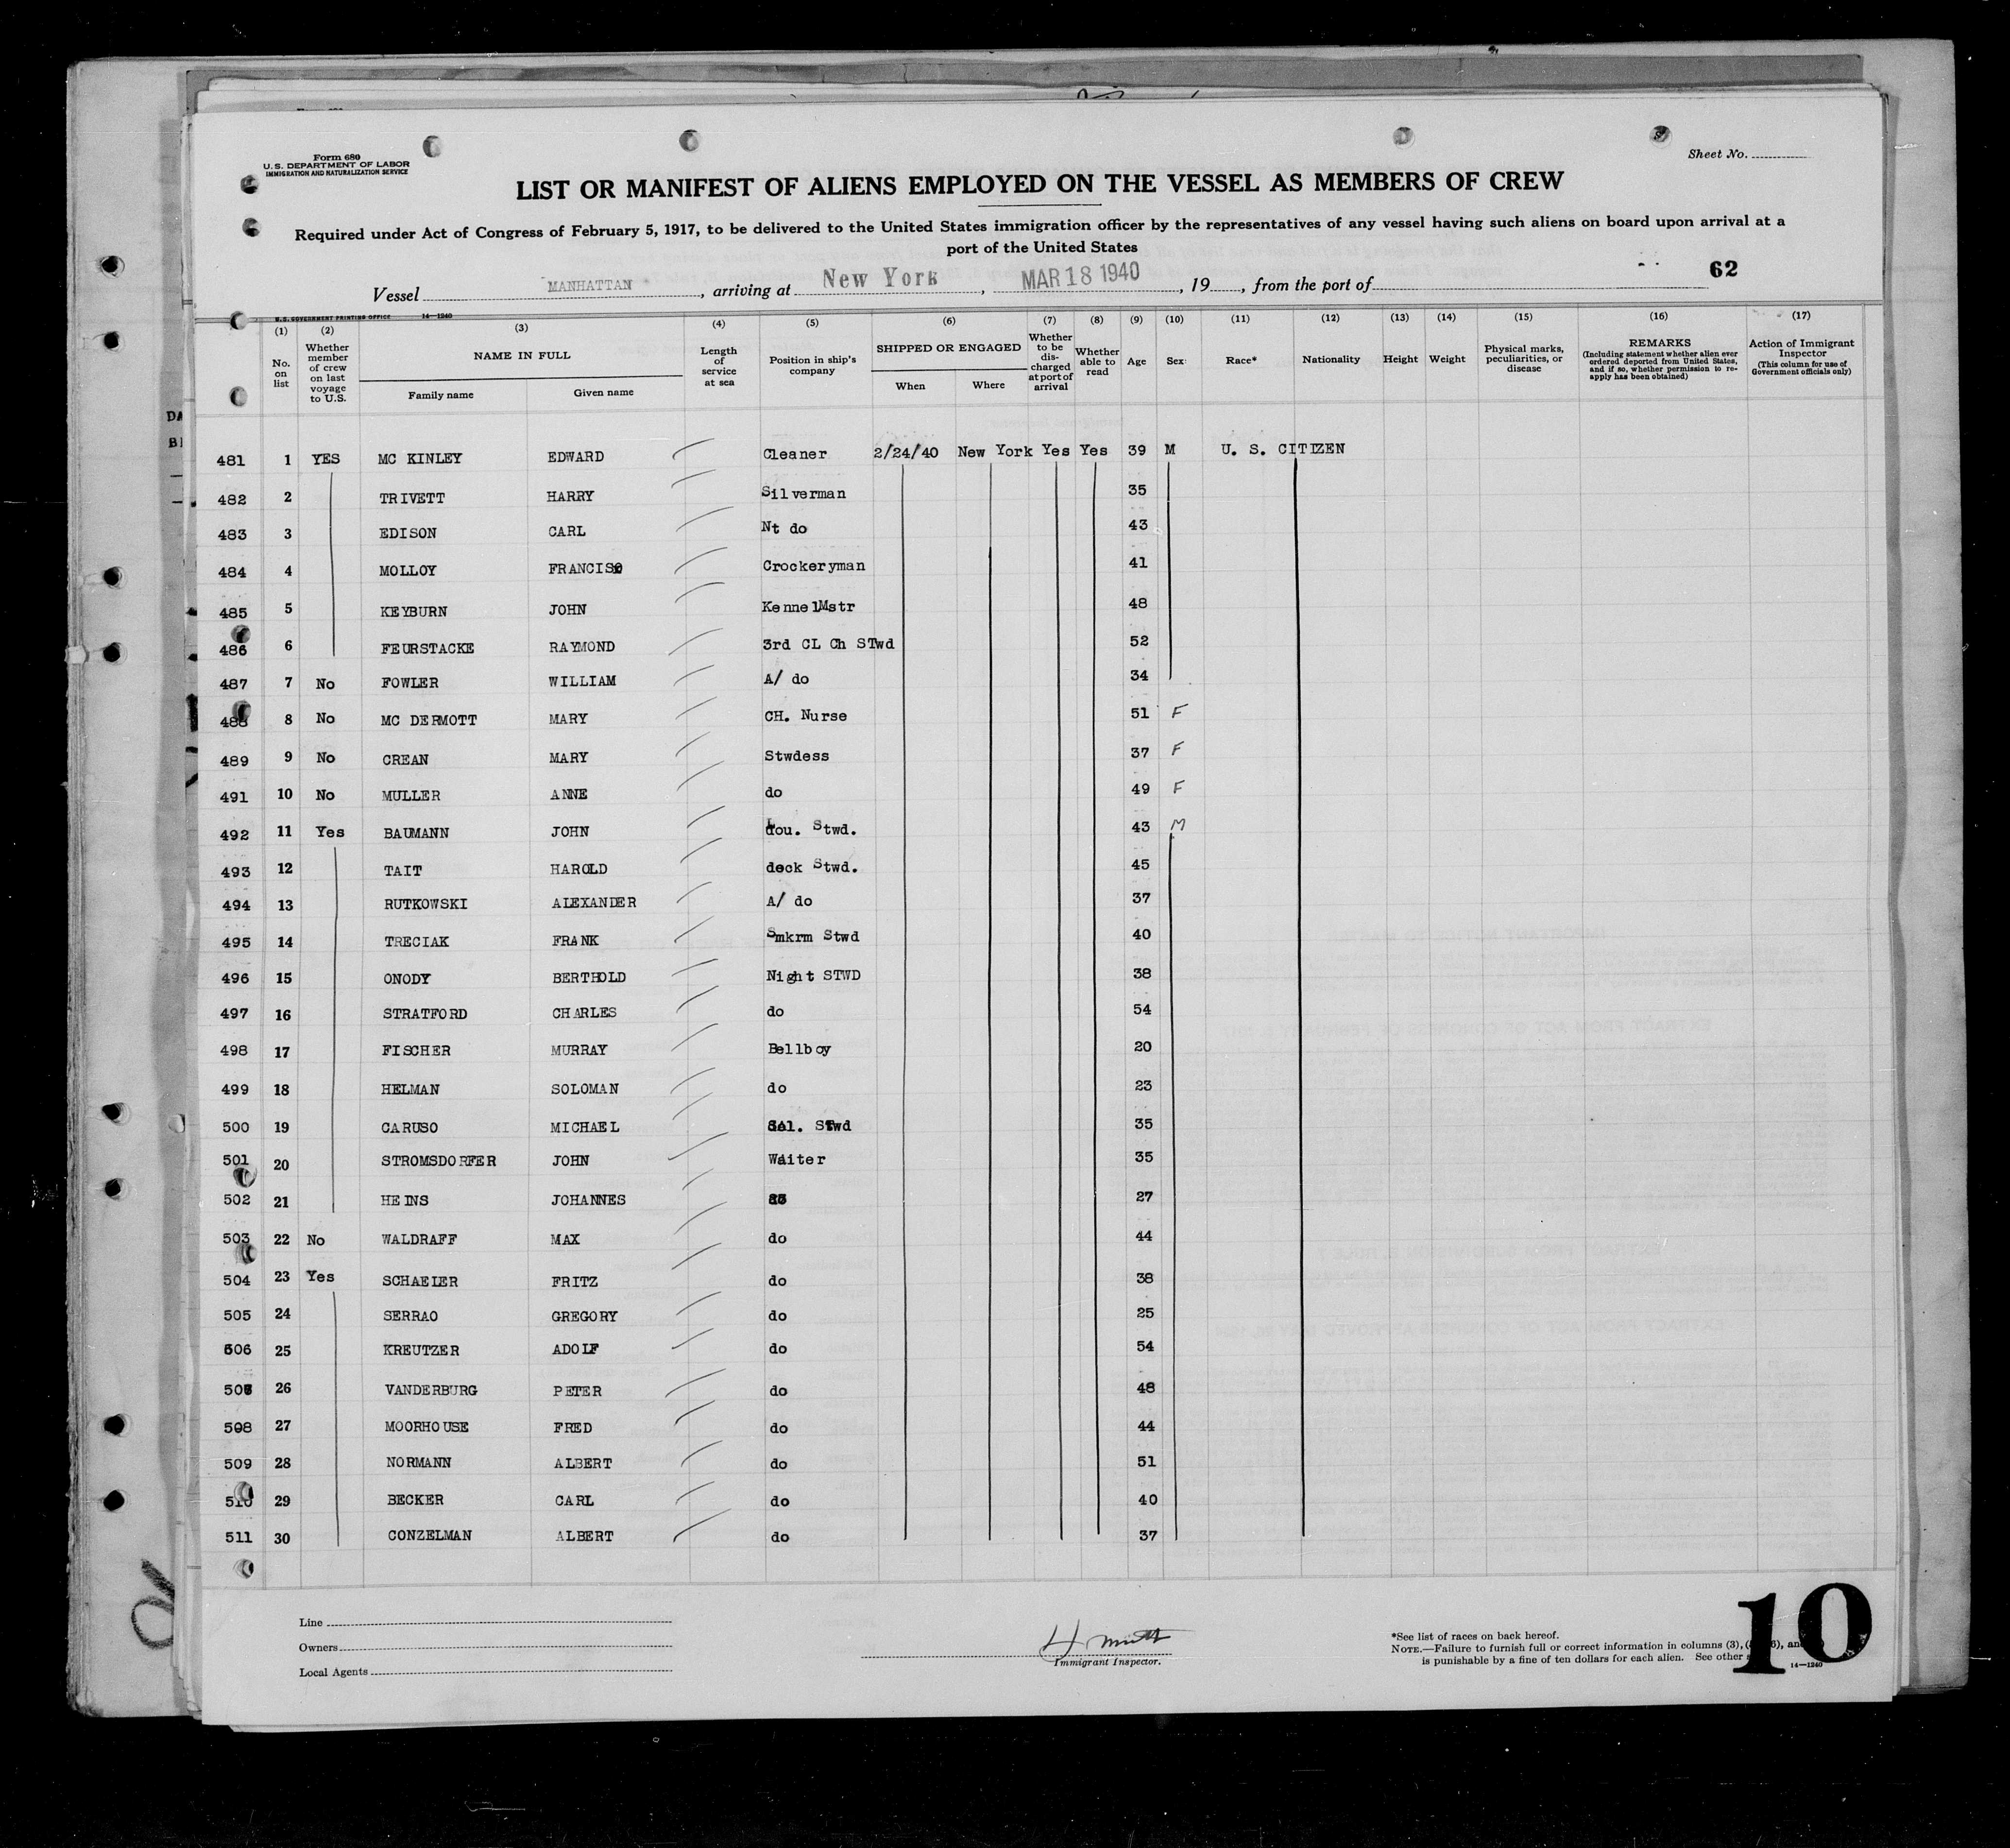 Form 680
U. S. DEPARTMENT OF LABOR
IMMIGRATION AND NATURALIZATION SERVICE
Sheet No.
LIST OR MANIFEST OF ALIENS EMPLOYED ON THE VESSEL AS MEMBERS OF CREW
Required under Act of Congress of February 5, 1917, to be delivered to the United States immigration officer by the representatives of any vessel having such aliens on board upon arrival at a
port of the United States
62
Vessel MANHATTAN, arriving at New York, MAR 18 1940, 19, from the port of
U. S. GOVERNMENT PRINTING OFFICE 14—1240
(1) (2) (3) (4) (5) (6) (7) (8) (9) (10) (11) (12) (13) (14) (15) (16) (17)
No. on list
Whether member of crew on last voyage to U.S.
NAME IN FULL
Family name
Given name
Length of service at sea
Position in ship's company
SHIPPED OR ENGAGED
When
Where
Whether to be discharged at port of arrival
Whether able to read
Age
Sex
Race*
Nationality
Height
Weight
Physical marks, peculiarities, or disease
REMARKS
(Including statement whether alien ever ordered deported from United States, and if so, whether permission to reapply has been obtained)
Action of Immigrant Inspector
(This column for use of Government officials only)
481 1 YES MC KINLEY EDWARD Cleaner 2/24/40 New York Yes Yes 39 M U. S. CITIZEN
482 2 TRIVETT HARRY Silverman 35
483 3 EDISON CARL Nt do 43
484 4 MOLLOY FRANCIS 41 Crockeryman
485 5 KEYBURN JOHN KennelMstr 48
486 6 FEURSTACKE RAYMOND 3rd CL Ch STwd 52
487 7 No FOWLER WILLIAM A/ do 34
488 8 No MC DERMOTT MARY CH. Nurse 51 F
489 9 No CREAN MARY Stwdess 37 F
491 10 No MULLER ANNE do 49 F
492 11 Yes BAUMANN JOHN Lou. Stwd. 43 M
493 12 TAIT HAROLD deck Stwd. 45
494 13 RUTKOWSKI ALEXANDER A/ do 37
495 14 TRECIAK FRANK Smkrm Stwd 40
496 15 ONODY BERTHOLD Night STWD 38
497 16 STRATFORD CHARLES do 54
498 17 FISCHER MURRAY Bellboy 20
499 18 HELMAN SOLOMAN do 23
500 19 CARUSO MICHAEL Sal. Stwd 35
501 20 STROMSDORFER JOHN Waiter 35
502 21 HEINS JOHANNES do 27
503 22 No WALDRAFF MAX do 44
504 23 Yes SCHAELER FRITZ do 38
505 24 SERRAO GREGORY do 25
506 25 KREUTZER ADOLF do 54
507 26 VANDERBURG PETER do 48
508 27 MOORHOUSE FRED do 44
509 28 NORMANN ALBERT do 51
510 29 BECKER CARL do 40
511 30 CONZELMAN ALBERT do 37
Line
Owners
Local Agents
Immigrant Inspector.
*See list of races on back hereof.
NOTE.—Failure to furnish full or correct information in columns (3), 6), and
is punishable by a fine of ten dollars for each alien. See other
14—1240
10